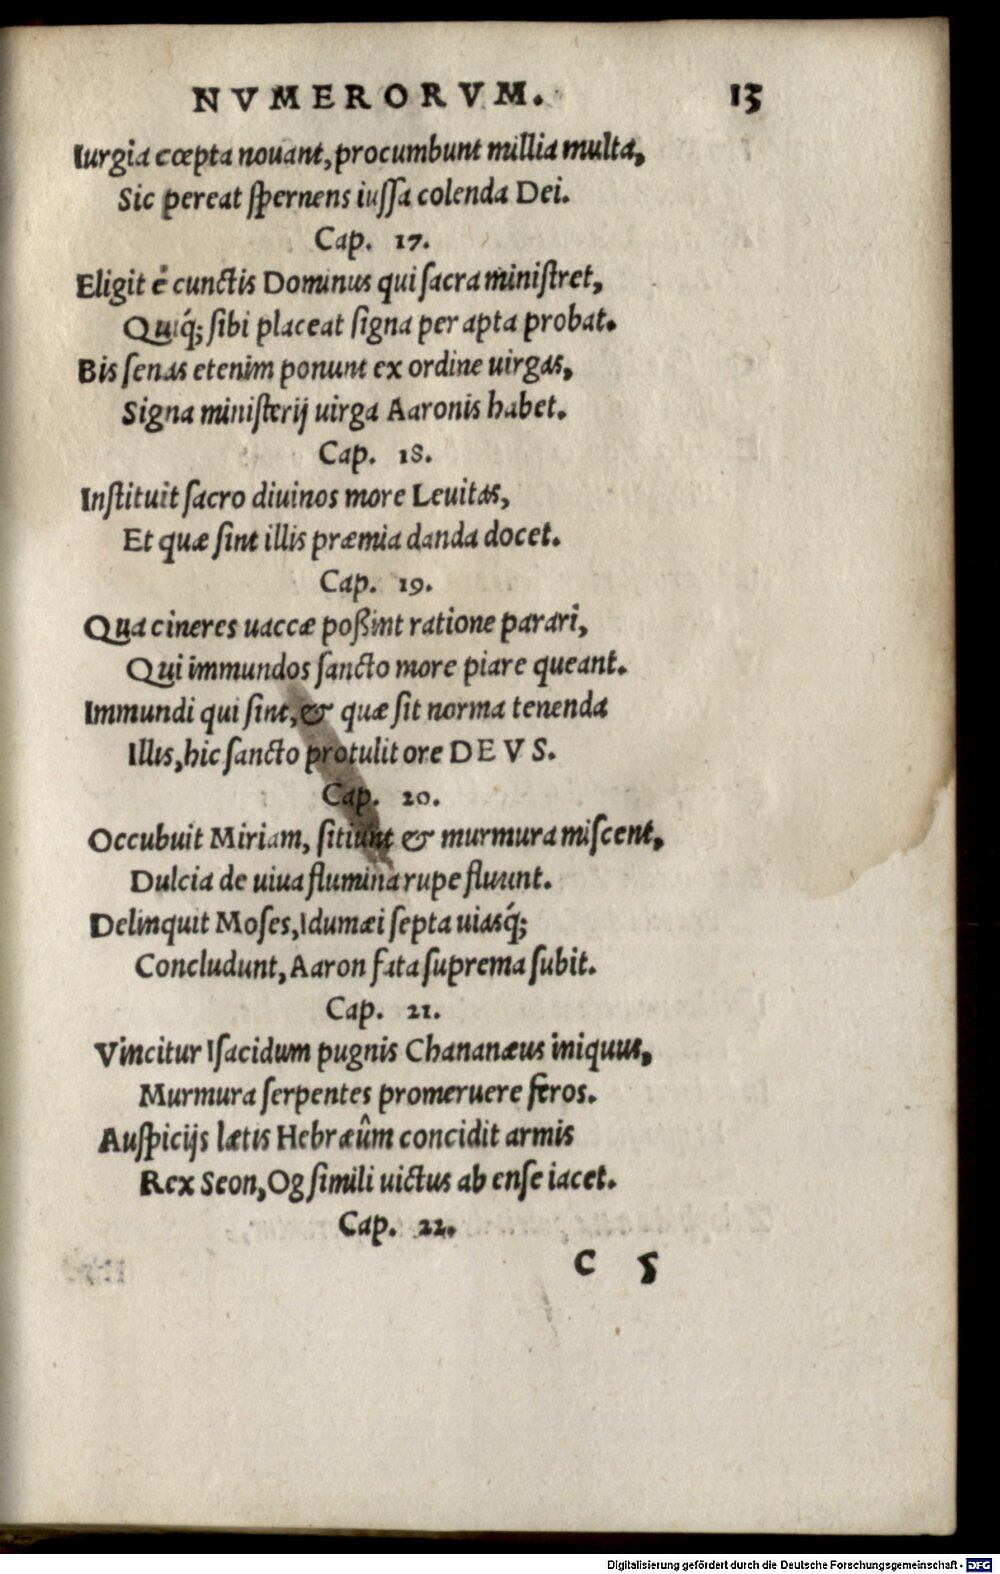 NVMERORVM. 13
Iurgia cœpta nouant, procumbunt millia multa,
Sic pereat ſpernens iuſſa colenda Dei.
Cap. 17.
Eligit è cunctis Dominus qui ſacra miniſtret,
Quiq́; ſibi placeat ſigna per apta probat.
Bis ſenas etenim ponunt ex ordine uirgas,
Signa miniſterij uirga Aaronis habet.
Cap. 18.
Inſtituit ſacro diuinos more Leuitas,
Et quæ ſint illis præmia danda docet.
Cap. 19.
Qua cineres uaccæ poßint ratione parari,
Qui immundos ſancto more piare queant.
Immundi qui ſint, & quæ ſit norma tenenda
Illis, hic ſancto protulit ore DEVS.
Cap. 20.
Occubuit Miriam, ſitiunt & murmura miſcent,
Dulcia de uiua flumina rupe fluunt.
Delinquit Moſes, Idumæi ſepta uiasq́;
Concludunt, Aaron fata ſuprema ſubit.
Cap. 21.
Vincitur Iſacidum pugnis Chananæus iniquus,
Murmura ſerpentes promeruere feros.
Auſpicijs lætis Hebræûm concidit armis
Rex Seon, Og ſimili uictus ab enſe iacet.
Cap. 22.
C 5
Digitalisierung gefördert durch die Deutsche Forschungsgemeinschaft - DFG